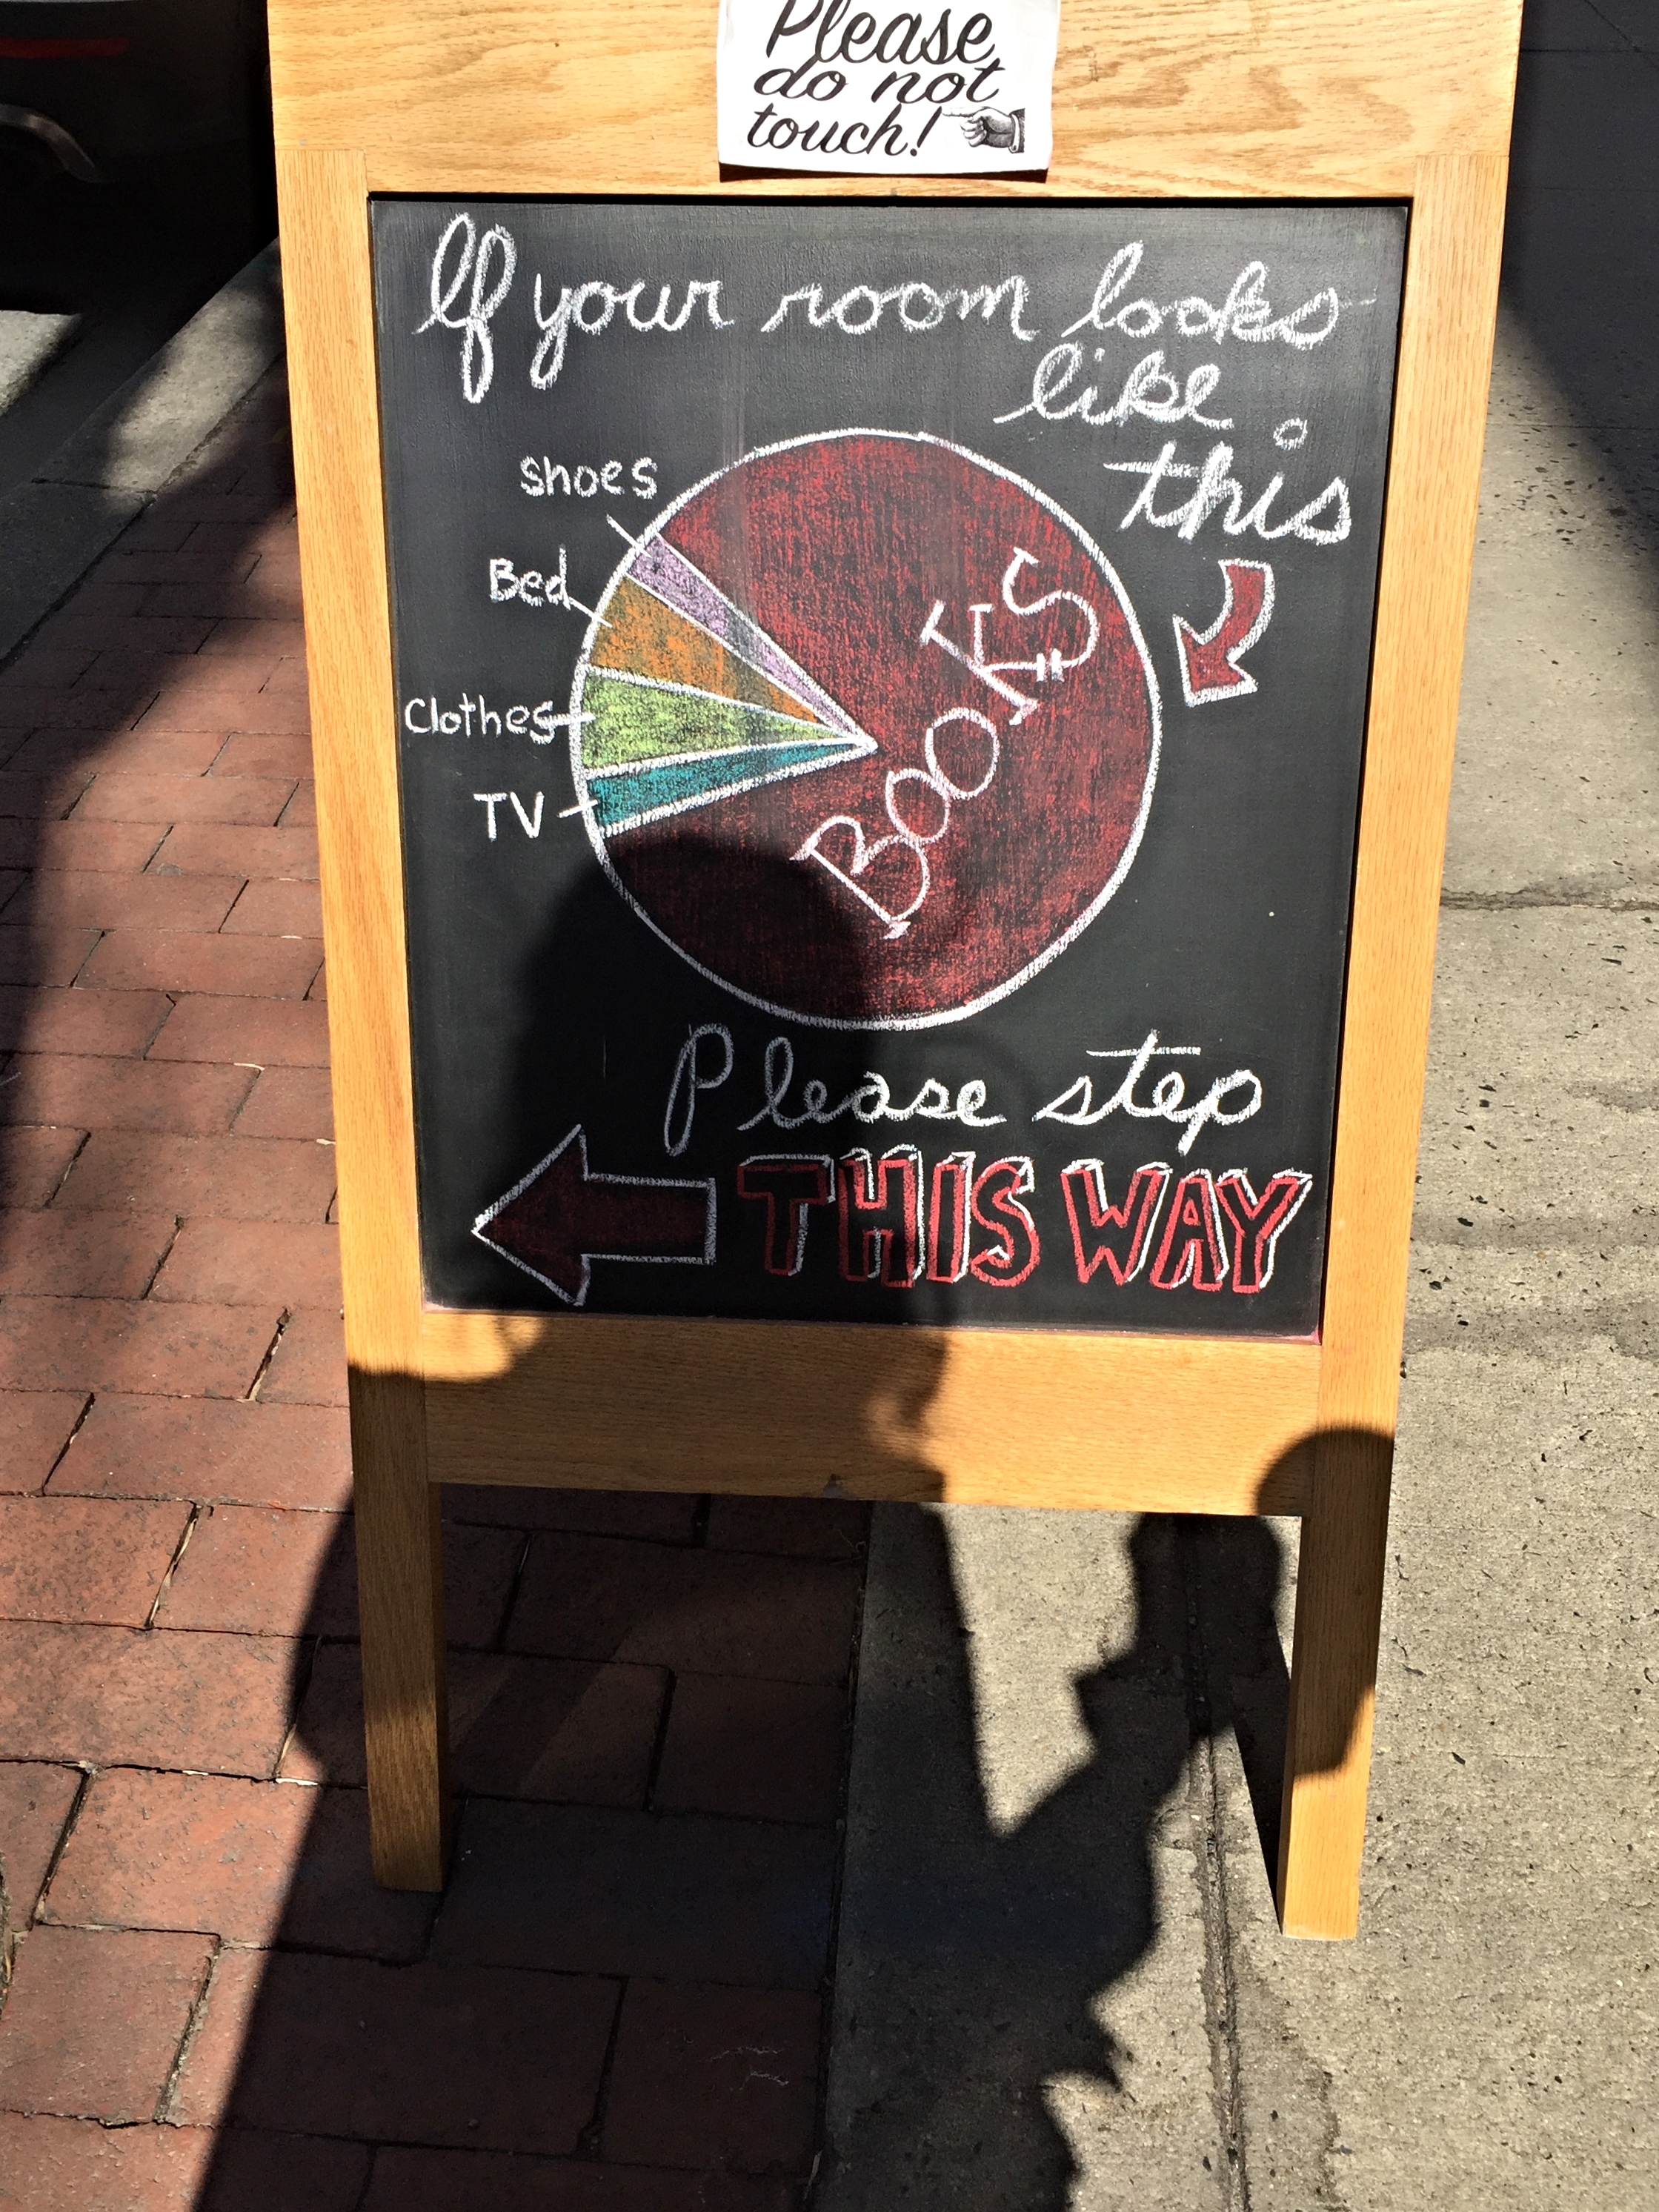 Please
do not
touch!
If your room looks
like
this
shoes
Bed
Clothes
TV
BOOKS
Please step
THIS WAY